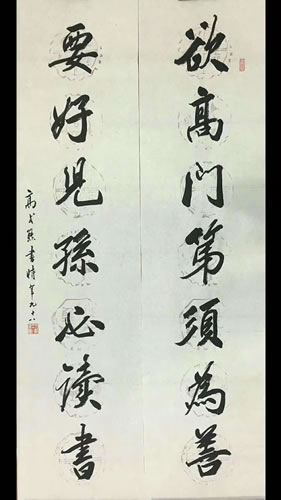 欲高门第須為善
要好兒孫必读書
高式熊書時年九十八